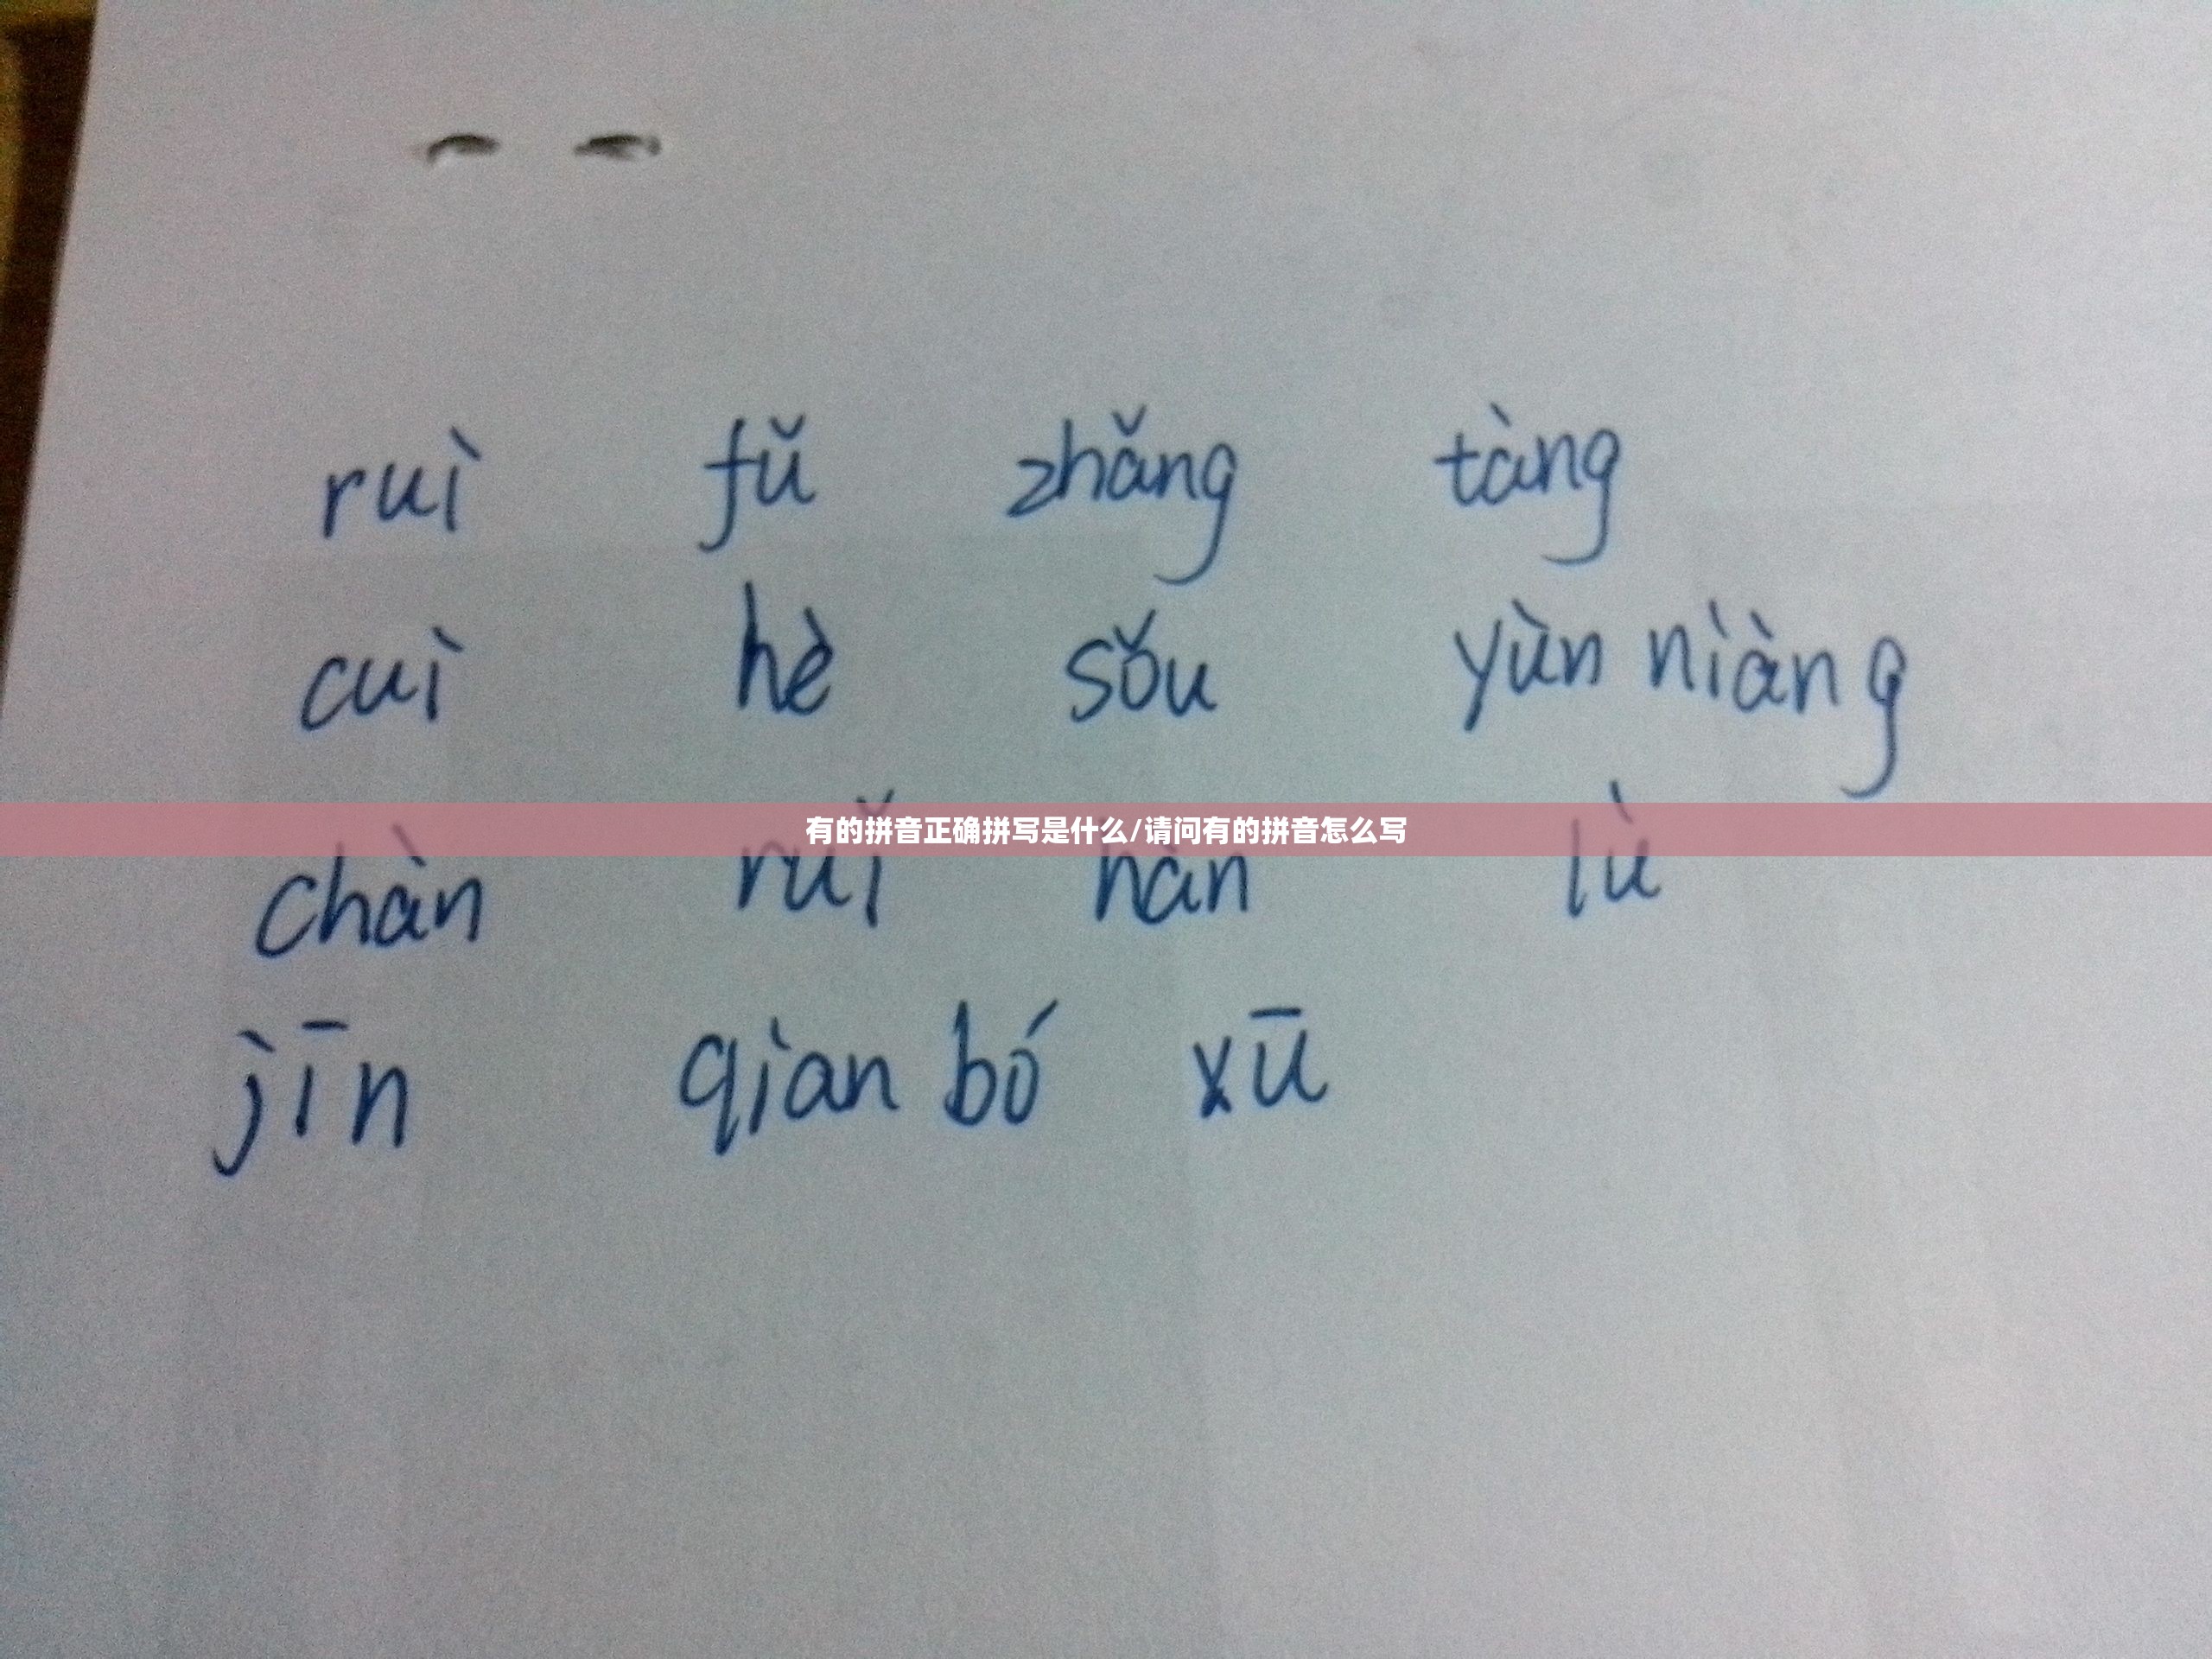 ruì fǔ zhǎng tàng
cuì hè sǒu yùn niàng
有的拼音正确拼写是什么/请问有的拼音怎么写
chàn ruǐ hàn lù
jīn qian bó xū